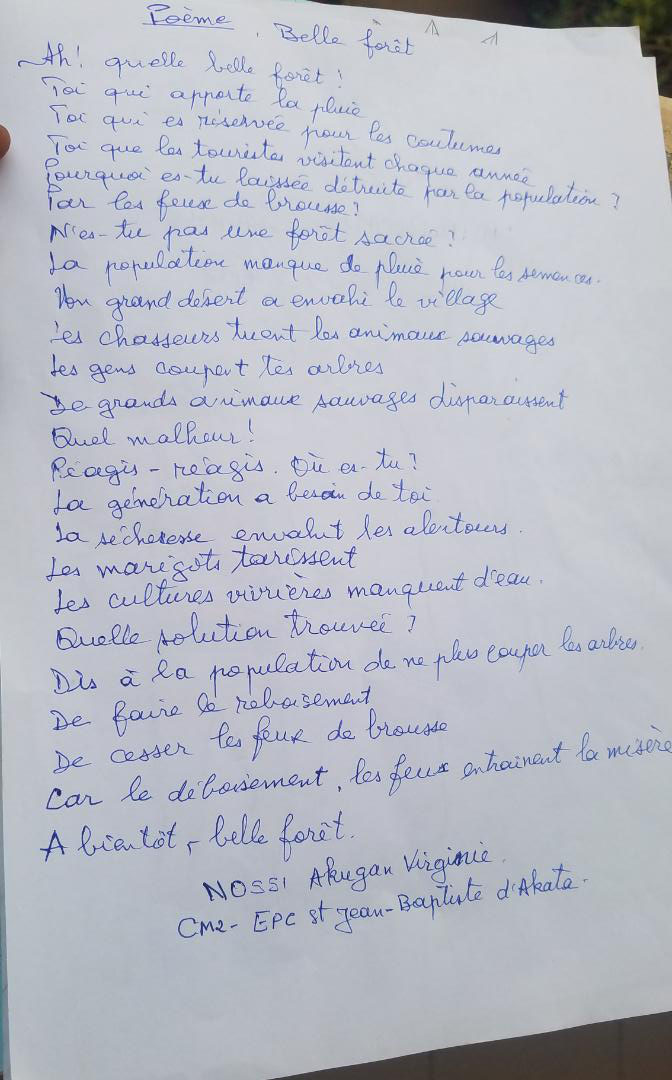 Poème. Belle forêt
Ah! quelle belle forêt!
Toi qui apporte la pluie
Toi qui es réservée pour les coutumes
Toi que les touristes visitent chaque année
Pourquoi es-tu laissée détruite par la population ?
Par les feux de brousse?
N'es-tu pas une forêt sacrée?
La population manque de pluie pour les semences.
Un grand désert a envahi le village
Les chasseurs tuent les animaux sauvages
Les gens coupent tes arbres
De grands animaux sauvages disparaissent
Quel malheur!
Réagis - réagis. Où es-tu?
La génération a besoin de toi
La sécheresse envahit les alentours.
Les marigots tarissent
Les cultures vivrières manquent d'eau.
Quelle solution trouvée ?
Dis à la population de ne plus couper les arbres.
De faire le reboisement
De cesser les feux de brousse
Car le déboisement, les feux entrainent la misère
A bientôt, belle forêt.
NOSSI Akugan Virginie.
CM2- EPC st Jean-Baptiste d'Akata.